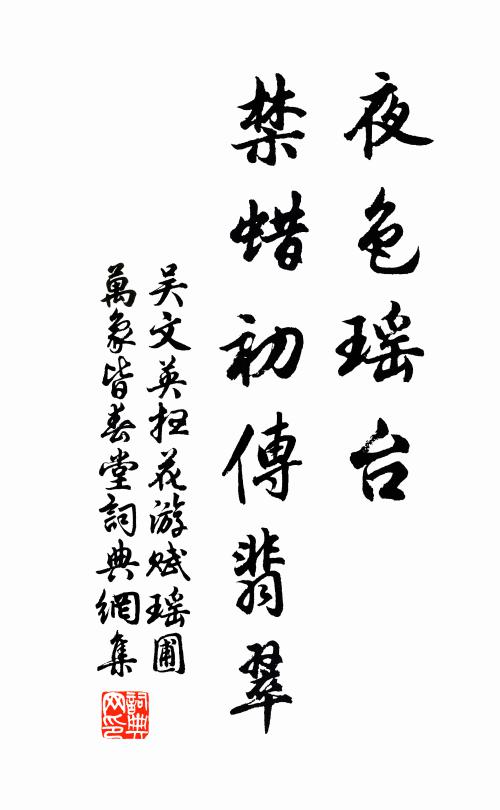 夜色瑶台
禁蜡初傳翡翠
吴文英扫花游赋瑶圃
萬象皆春堂詞典網集
詞典网印